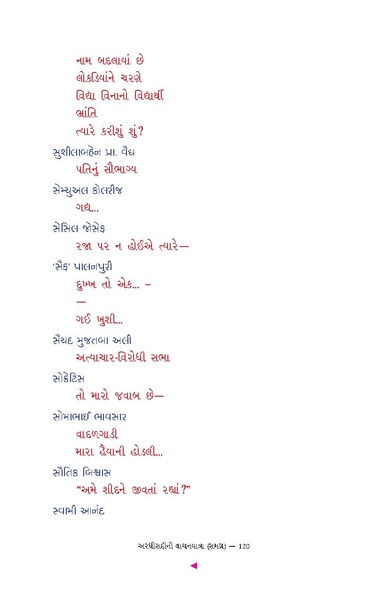 નામ બદલાવાં છે
લોકડિયાંને ચરણે
વિદ્યા વિનાનો વિદ્યાર્થી
ભ્રાંતિ
ત્યારે કરીશું શું?
સુશીલાબહેન પ્રા. વૈદ્ય
પતિનું સૌભાગ્ય
સૅમ્યુઅલ કોલરીજ
ગદ્ય...
સેસિલ જોસેફ
રજા પર ન હોઈએ ત્યારે—
‘સૈફ’ પાલનપુરી
દુખ્ખ તો એક... –
—
ગઈ ખુશી...
સૈયદ મુજતબા અલી
અત્યાચાર-વિરોધી સભા
સૉક્રેટિસ
તો મારો જવાબ છે—
સોમાભાઈ ભાવસાર
વાદળગાડી
મારા હૈયાની હોડલી...
સૌતિક બિશ્વાસ
“અમે શીદને જીવતાં રહ્યાં?”
સ્વામી આનંદ
અરધીસદીની વાચનયાત્રા (સમગ્ર) — 120